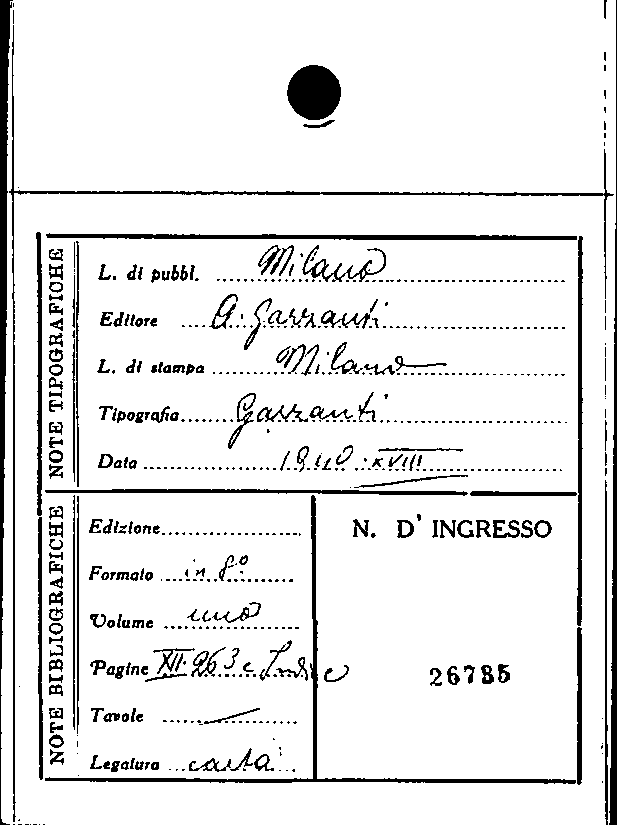 NOTE TIPOGRAFICHE
L. di pubbl. Milano
Editore A. Garzanti
L. di stampa Milano
Tipografia Garzanti
Data 1940 · XVIII
NOTE BIBLIOGRAFICHE
Edizione
Formato in 8º
Volume uno
Pagine XII·263 e Indice
Tavole —
Legatura carta
N. D' INGRESSO
26785